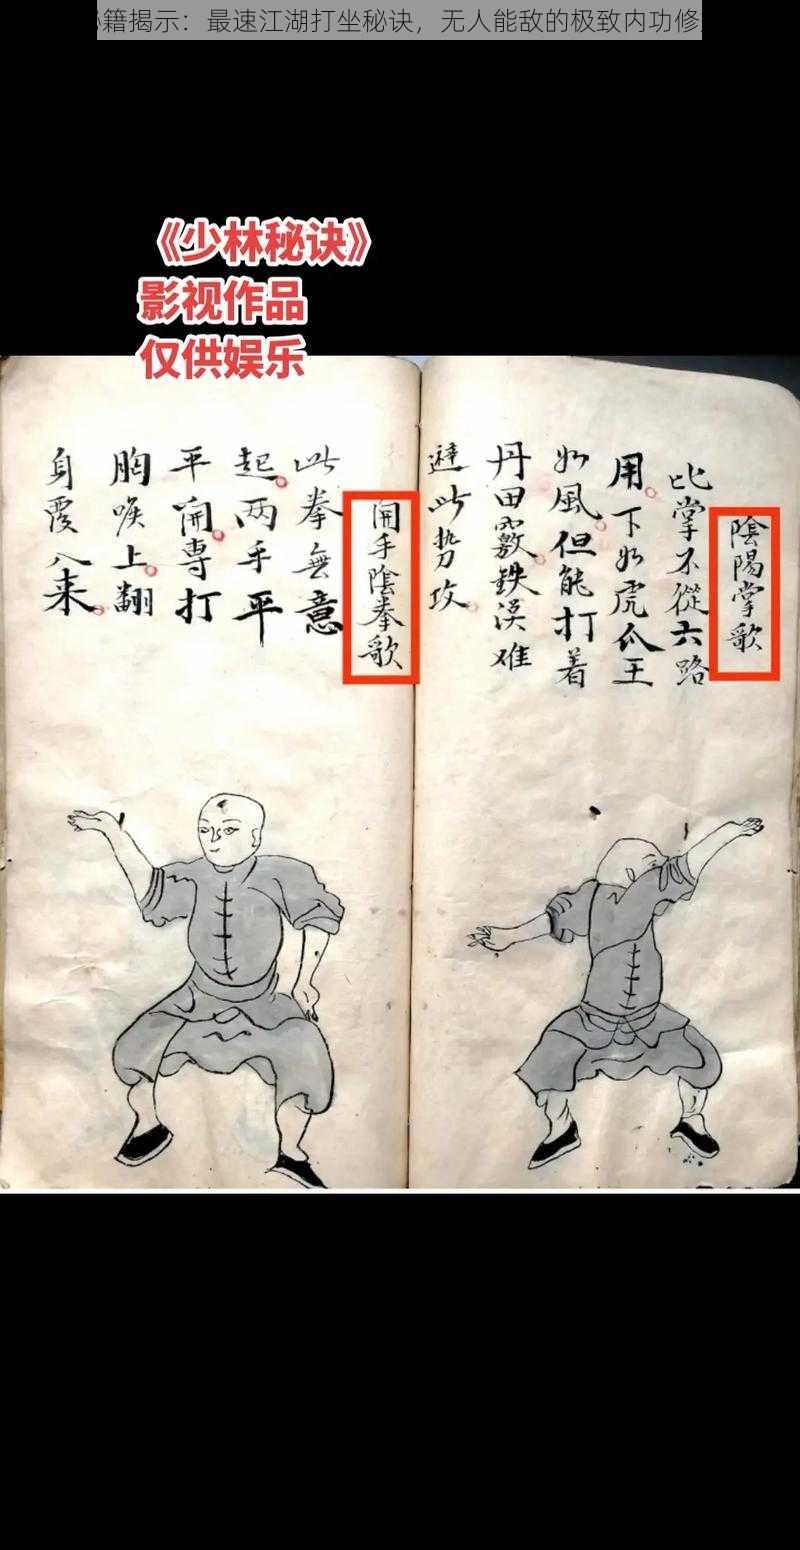 籍揭示：最速江湖打坐秘诀，无人能敌的极致内功修
《少林秘诀》
影视作品
仅供娱乐
陰陽掌歌
此掌不從六路
用下如虎爪王
如風但能打着
丹田竅鉄漢难
避此势攻
開手陰拳歌
此拳無意
起两手平
平開專打
胸喉上翻
身覆入来